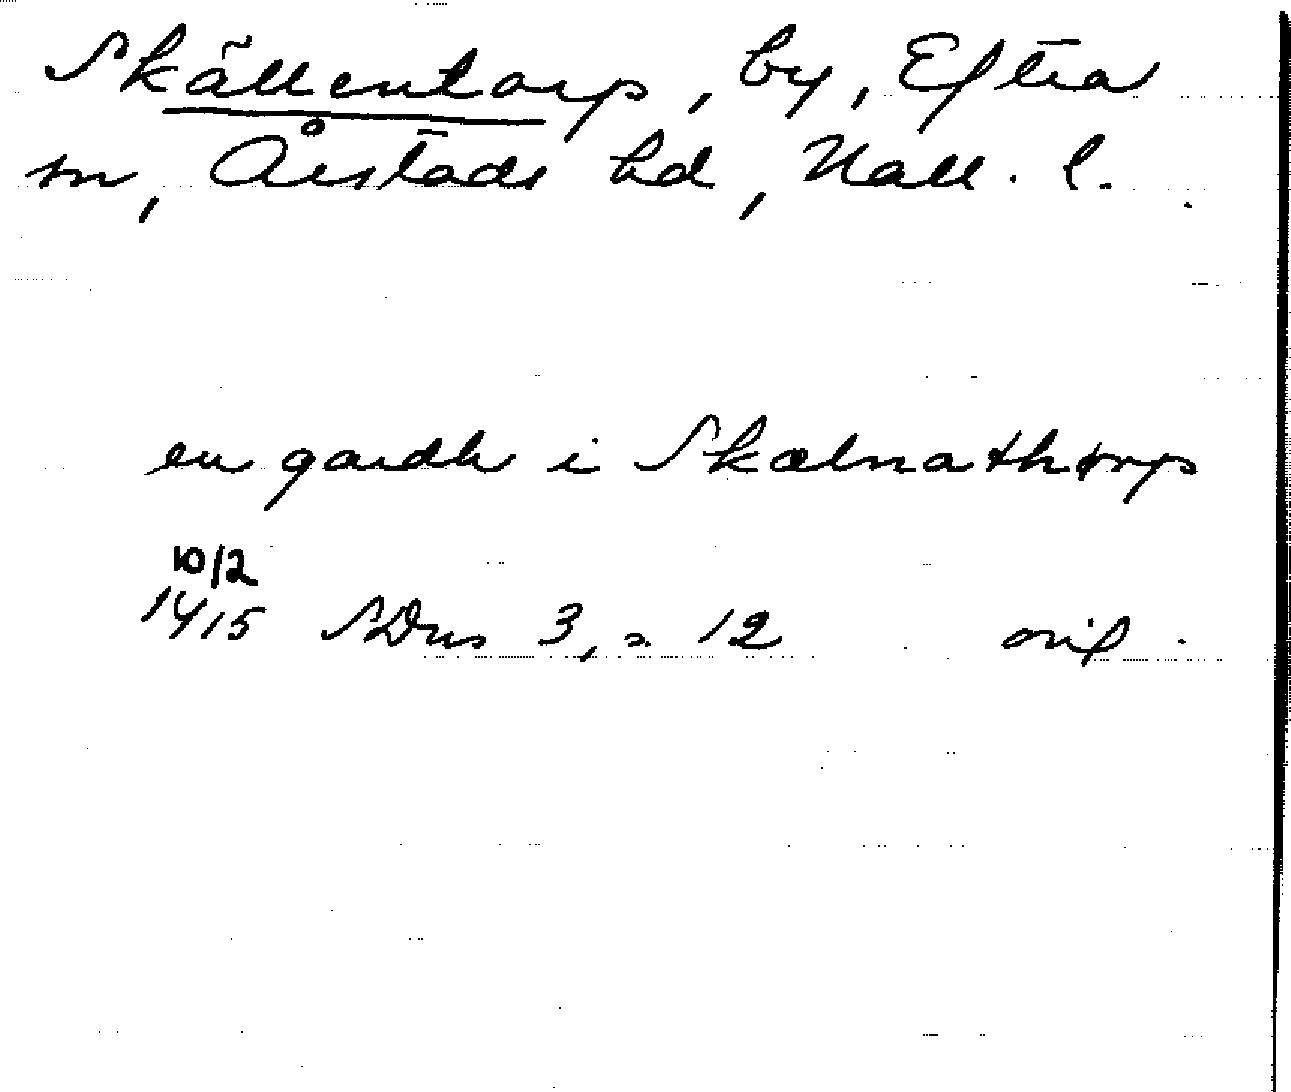 Skällentorp, by, Eftra
sn, Årstads hd, Hall. l.
en gardh i Skælnathorp
10/2
1415 SDns 3, s. 12 orig.